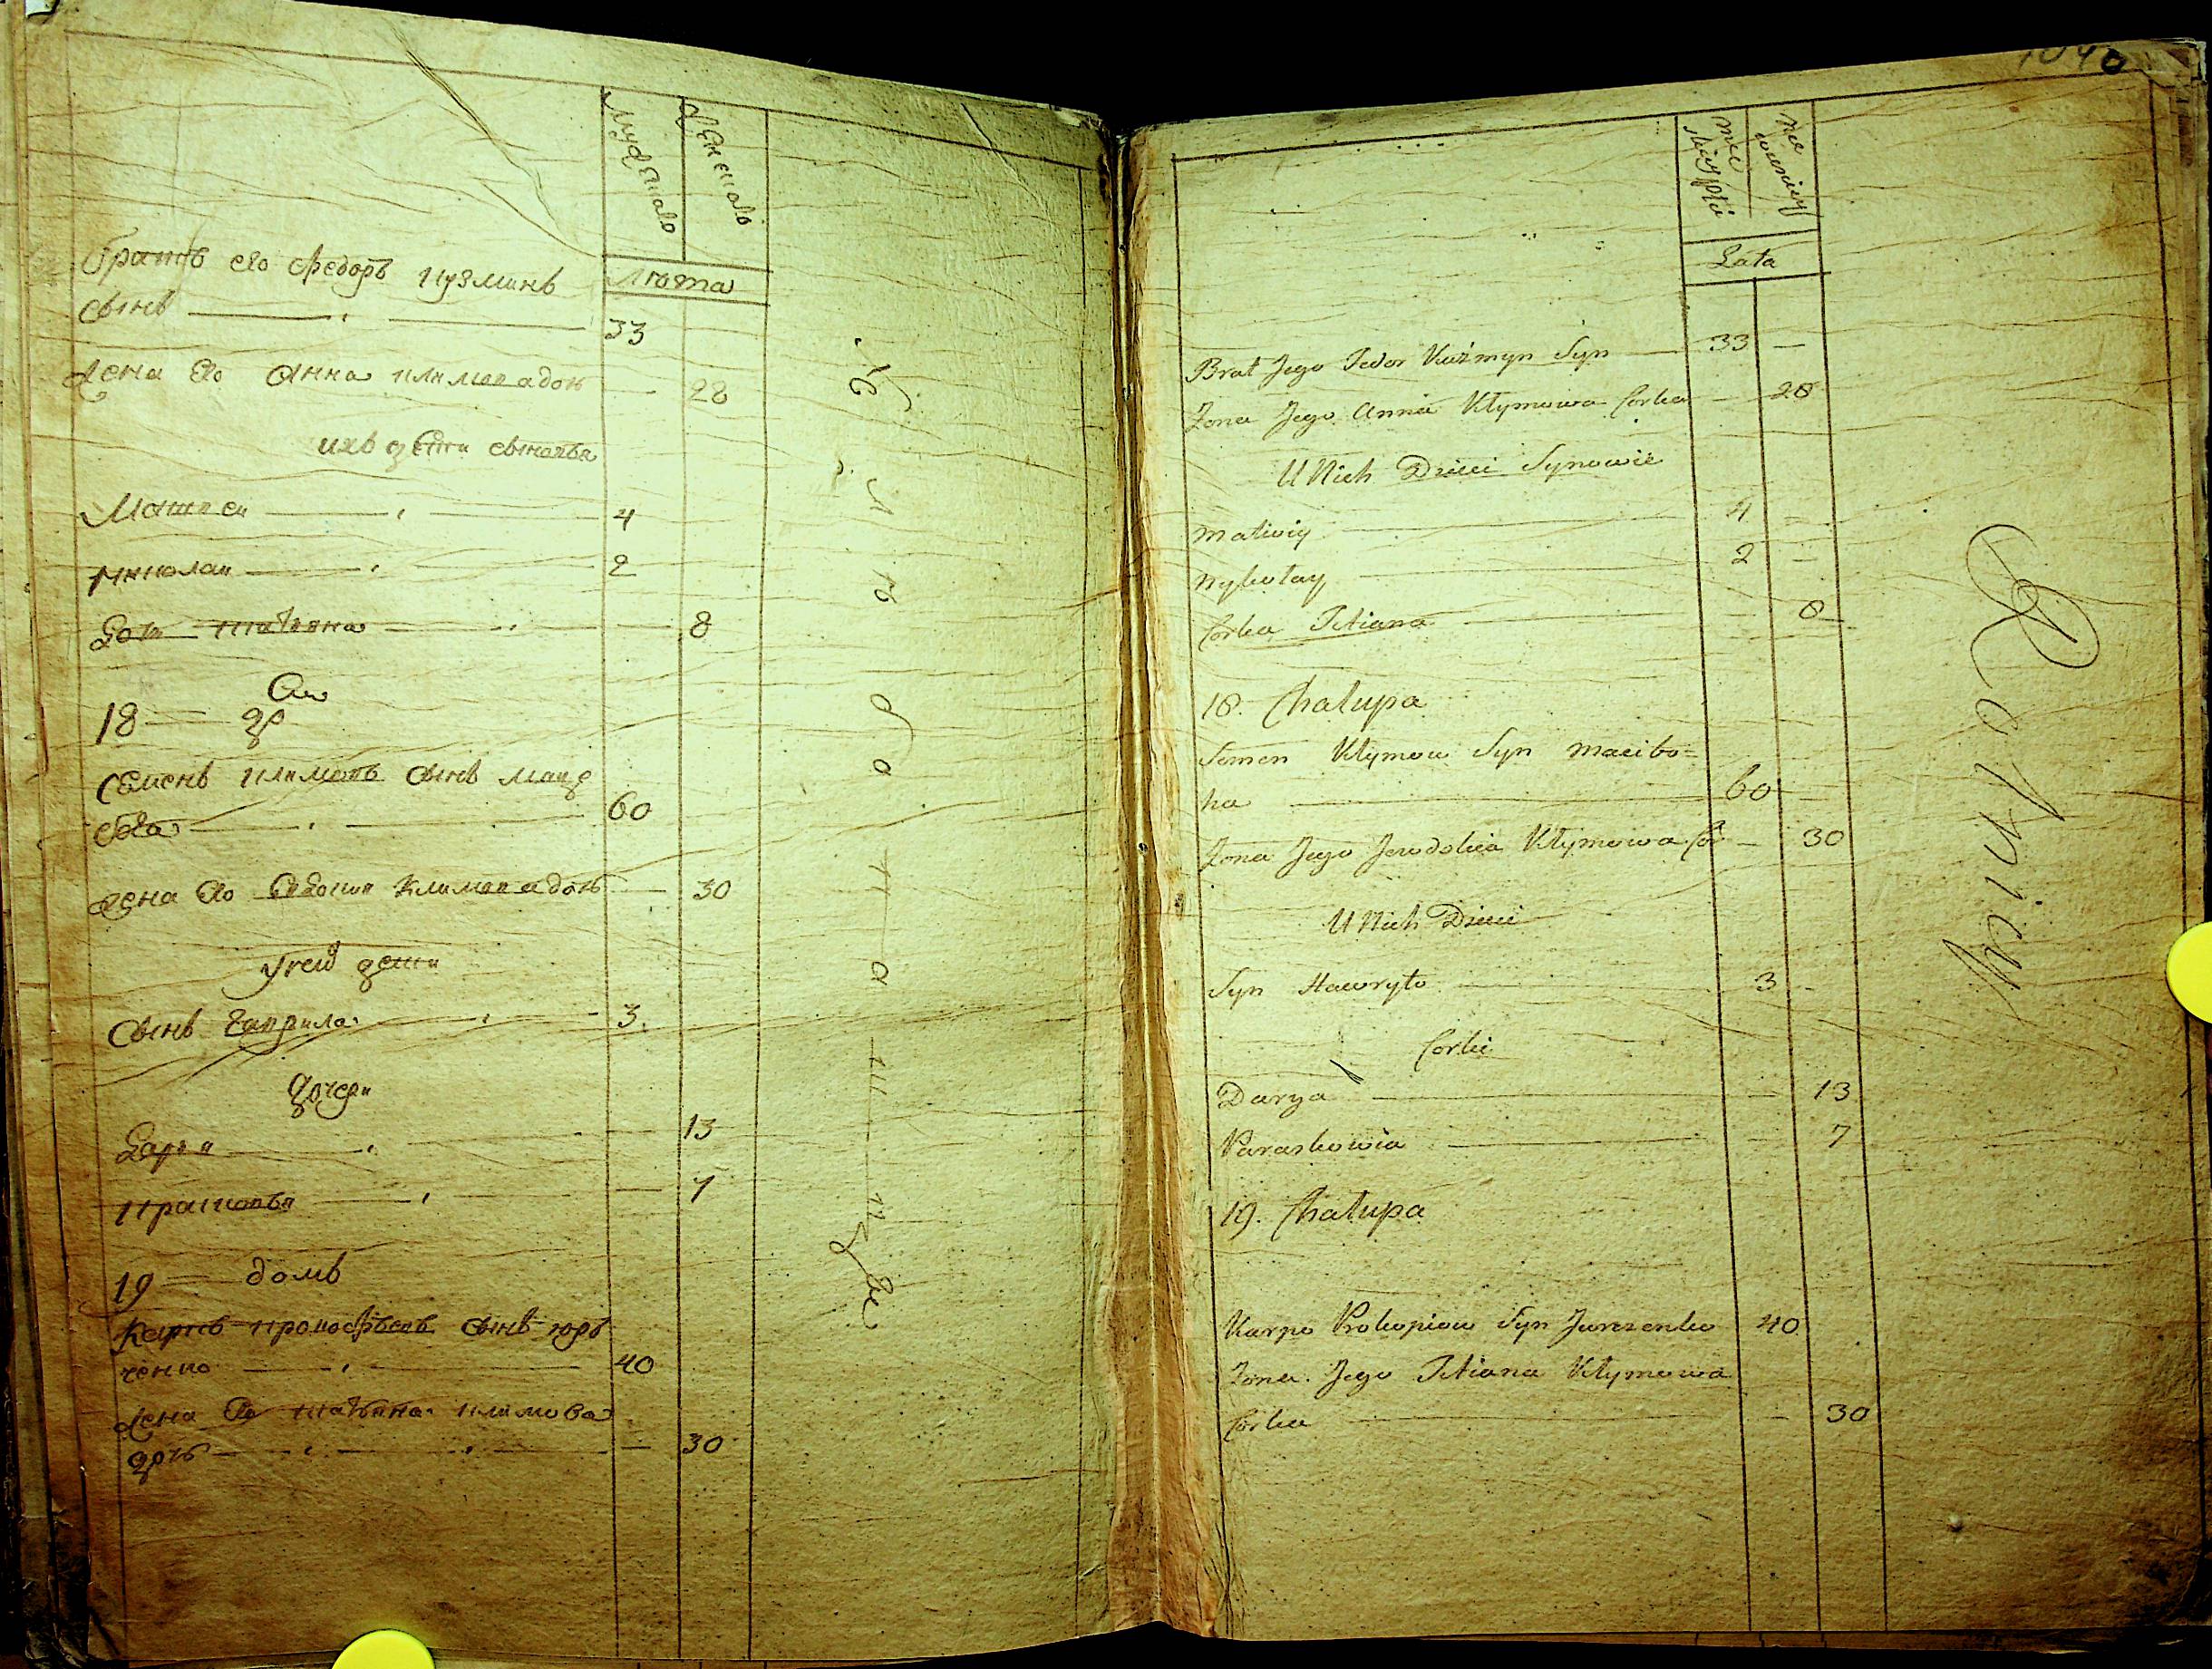 Мужеска
Женска
Лѣта
братъ его Федоръ кузминъ
сынъ 33
жена его Анна климова дочь — 28
ихъ дети сыновья
Матвей 4
николай 2
Дочь татьяна 8
18
Семенъ климовъ сынъ маце
60
жена его Евдокия климова дочь — 30
У ней дети
Сынъ гаврила 3
дочери
Дарья 13
прасковья 7
19 домъ
Карпъ прокофьевъ сынъ юръ
ченко 40
жена его татьяна климова
дочь — 30
1040
męż
Lata
Brat Jego Fedor Kuźmyn Syn 33 —
Żona Jego Anna Kłymowa Corka — 28
U Nich Dzieci Synowie
Matwiy 4 —
Nykołay 2 —
Corka Tetiana 8
18. Chałupa
Semen Kłymow Syn Macibo=
ha 60 —
Żona Jego Jewdokia Kłymowa Cór — 30
U Nich Dzieci
Syn Hawryło 3 -
Corki
Darya — 13
Paraskowia — 7
19. Chałupa
Karpo Prokopiow Syn Jurczenko 40
Żona Jego Tetiana Kłymowa
Corka — 30